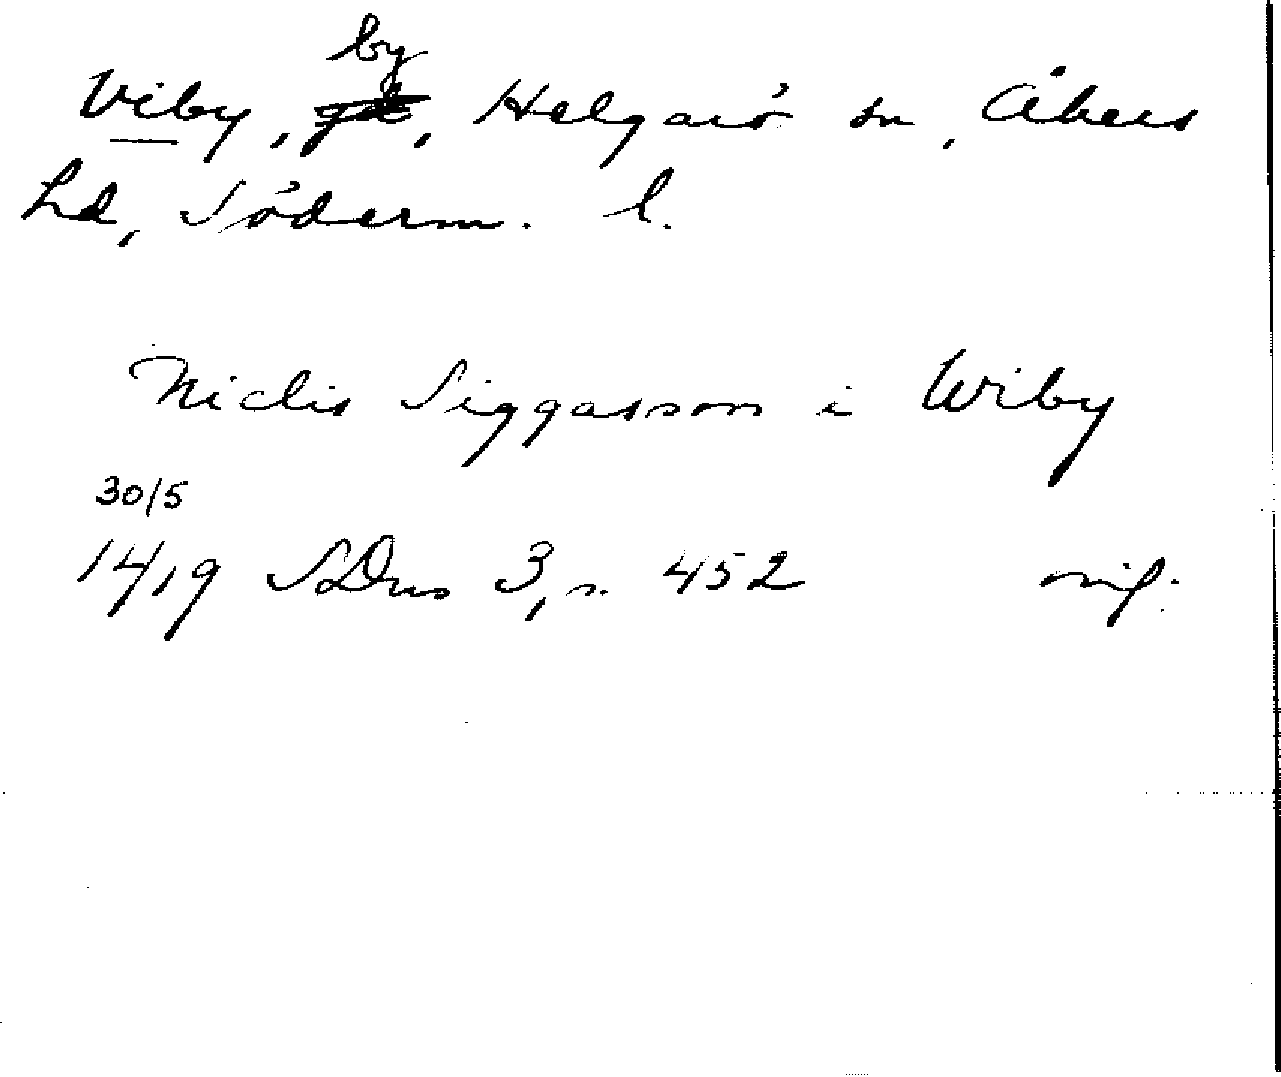 by
Viby, gd, Helgarö sn, Åkers
hd, Söderm. l.
Niclis Siggasson i Wiby
30/5
1419 SDns 3, s. 452 orig.